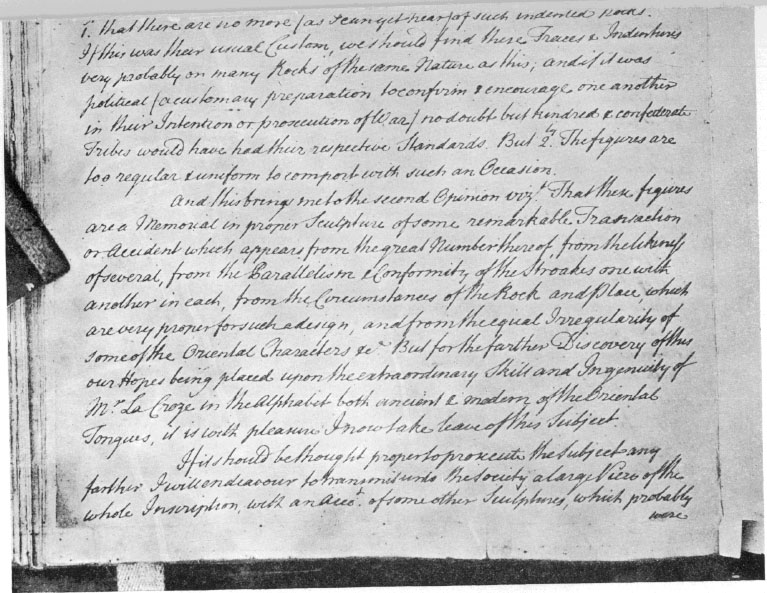 1. that there are no more (as I can yet hear) of such indented Rocks.
If this was their usual Custom, we should find these Traces & Indentures
very probably on many Rocks of the same Nature as this; and if it was
political (a customary preparation to confirm & encourage one another
in their Intention or prosecution of War) no doubt but kindred & confederate
Tribes would have had their respective Standards. But 2ly. The figures are
too regular & uniform to comport with such an Occasion.
And this brings me to the second Opinion vizt. That these figures
are a Memorial in proper Sculpture of some remarkable Transaction
or Accident which appears from the great Number thereof, from the likeness
of several, from the Parallelism & Conformity of the Stroakes one with
another in each, from the Circumstances of the Rock and Place, which
are very proper for such a design, and from the equal Irregularity of
some of the Oriental Characters &c. But for the farther Discovery of this
our Hopes being placed upon the extraordinary Skill and Ingenuity of
Mr. La Croze in the Alphabet both ancient & modern of the Oriental
Tongues, it is with pleasure I now take leave of this Subject.
If it should be thought proper to prosecute the Subject any
farther I will endeavour to transmit unto the Society a large View of the
whole Inscription, with an Acct. of some other Sculptures, which probably
were